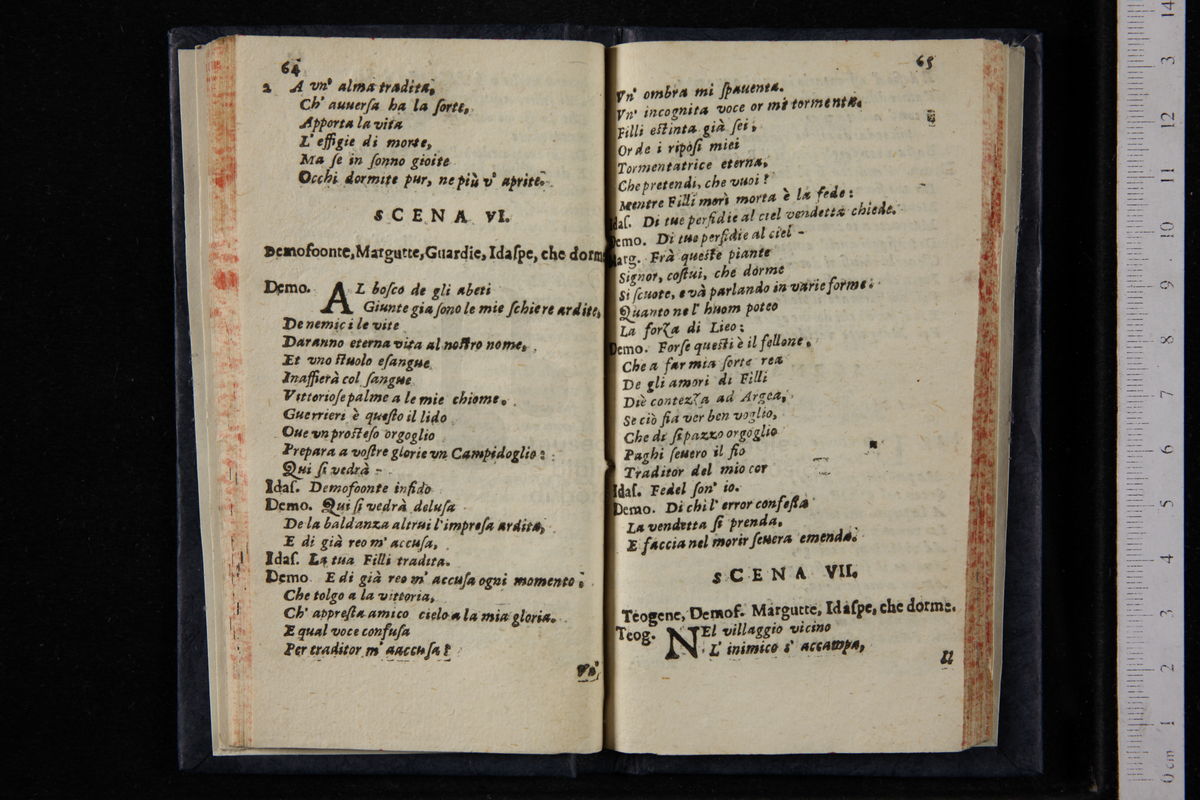 64
2 A vn' alma tradita,
Ch' auuersa ha la sorte,
Apporta la vita
L' effigie di morte,
Ma se in sonno gioite
Occhi dormite pur, ne più v' aprite.
SCENA VI.
Demofoonte, Margutte, Guardie, Idaspe, che dorme
Demo. AL bosco de gli abeti
Giunte gia sono le mie schiere ardite,
De nemici le vite
Daranno eterna vita al nostro nome,
Et vno stuolo esangue
Inaffierà col sangue
Vittoriose palme a le mie chiome.
Guerrieri è questo il lido
Oue vn prosteso orgoglio
Prepara a vostre glorie vn Campidoglio:
Qui si vedrà -
Idas. Demofoonte infido
Demo. Qui si vedrà delusa
De la baldanza altrui l'impresa ardita,
E di già reo m' accusa,
Idas. La tua Filli tradita.
Demo E di già reo m' accusa ogni momento:
Che tolgo a la vittoria,
Ch' appresta amico cielo a la mia gloria.
E qual voce confusa
Per traditor m' aaccusa?
Vn'
65
Vn' ombra mi spauenta.
Vn' incognita voce or mi tormenta.
Filli estinta già sei;
Or de i riposi miei
Tormentatrice eterna,
Che pretendi, che vuoi?
Mentre Filli morì morta è la fede:
Idas. Di tue perfidie al ciel vendetta chiede.
Demo. Di tue perfidie al ciel -
Marg. Frà queste piante
Signor, costui, che dorme
Si scuote, e và parlando in varie forme:
Quanto ne l' huom poteo
La forza di Lieo:
Demo. Forse questi è il fellone,
Che a far mia sorte rea
De gli amori di Filli
Diè contezza ad Argea,
Se ciò fia ver ben voglio,
Che di si pazzo orgoglio
Paghi seuero il fio
Traditor del mio cor
Idas. Fedel son' io.
Demo. Di chi l' error confessa
La vendetta si prenda,
E faccia nel morir seuera emenda.
SCENA VII.
Teogene, Demof. Margutte, Idaspe, che dorme.
Teog. NEl villaggio vicino
L' inimico s' accampa,
Il